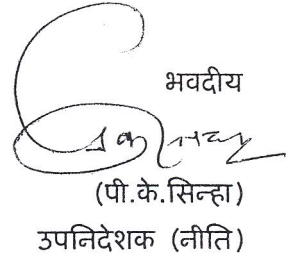 भवदीय
(पी.के.सिन्हा)
उपनिदेशक (नीति)